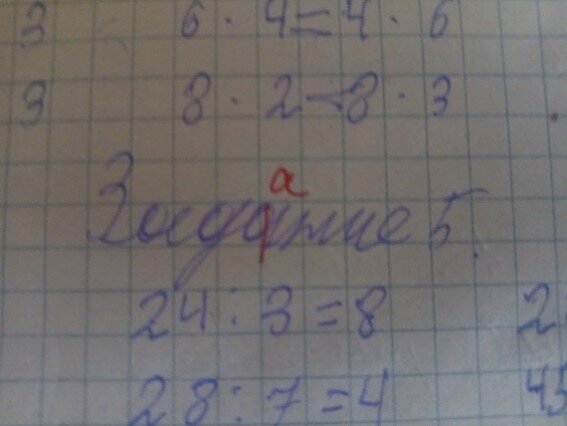 3 6 · 4 = 4 · 6
3 8 · 2 < 8 · 3
а
Задание 5.
24 : 3 = 8 2
28 : 7 = 4 45